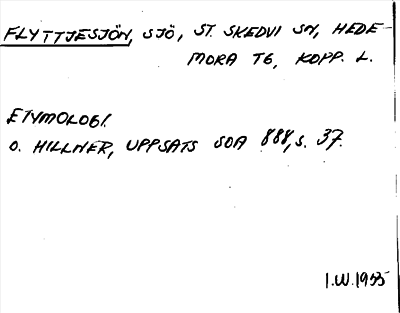 FLYTTJESJÖN, SJÖ, ST. SKEDVI SN, HEDE-
MORA TG, KOPP. L.
ETYMOLOGI.
O. HILLNER, UPPSATS SOA 888, S. 37.
I.W. 1955